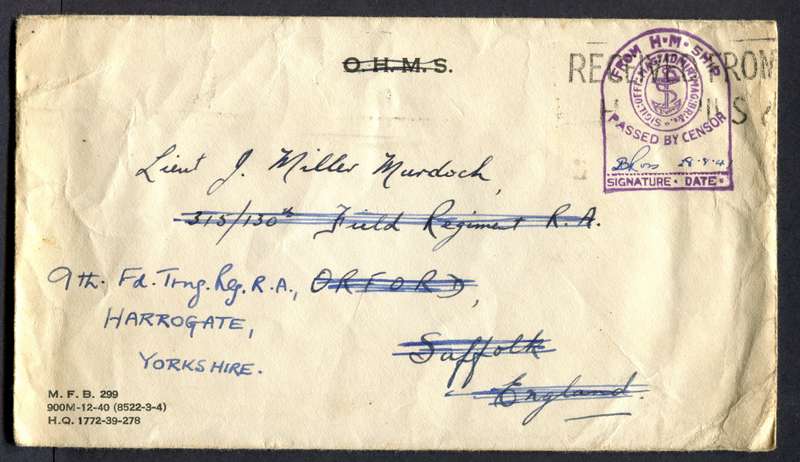 O.H.M.S.
RECEIVED FROM
H.M. SHIPS
FROM H·M·SHIP
PASSED BY CENSOR
28·8·41
SIGNATURE · DATE ·
Lieut J. Miller Murdoch,
315/130th Field Regiment R.A.
9th. Fd. Trng. Reg. R.A., ORFORD,
HARROGATE,
Suffolk
YORKSHIRE.
England.
M. F. B. 299
900M-12-40 (8522-3-4)
H.Q. 1772-39-278